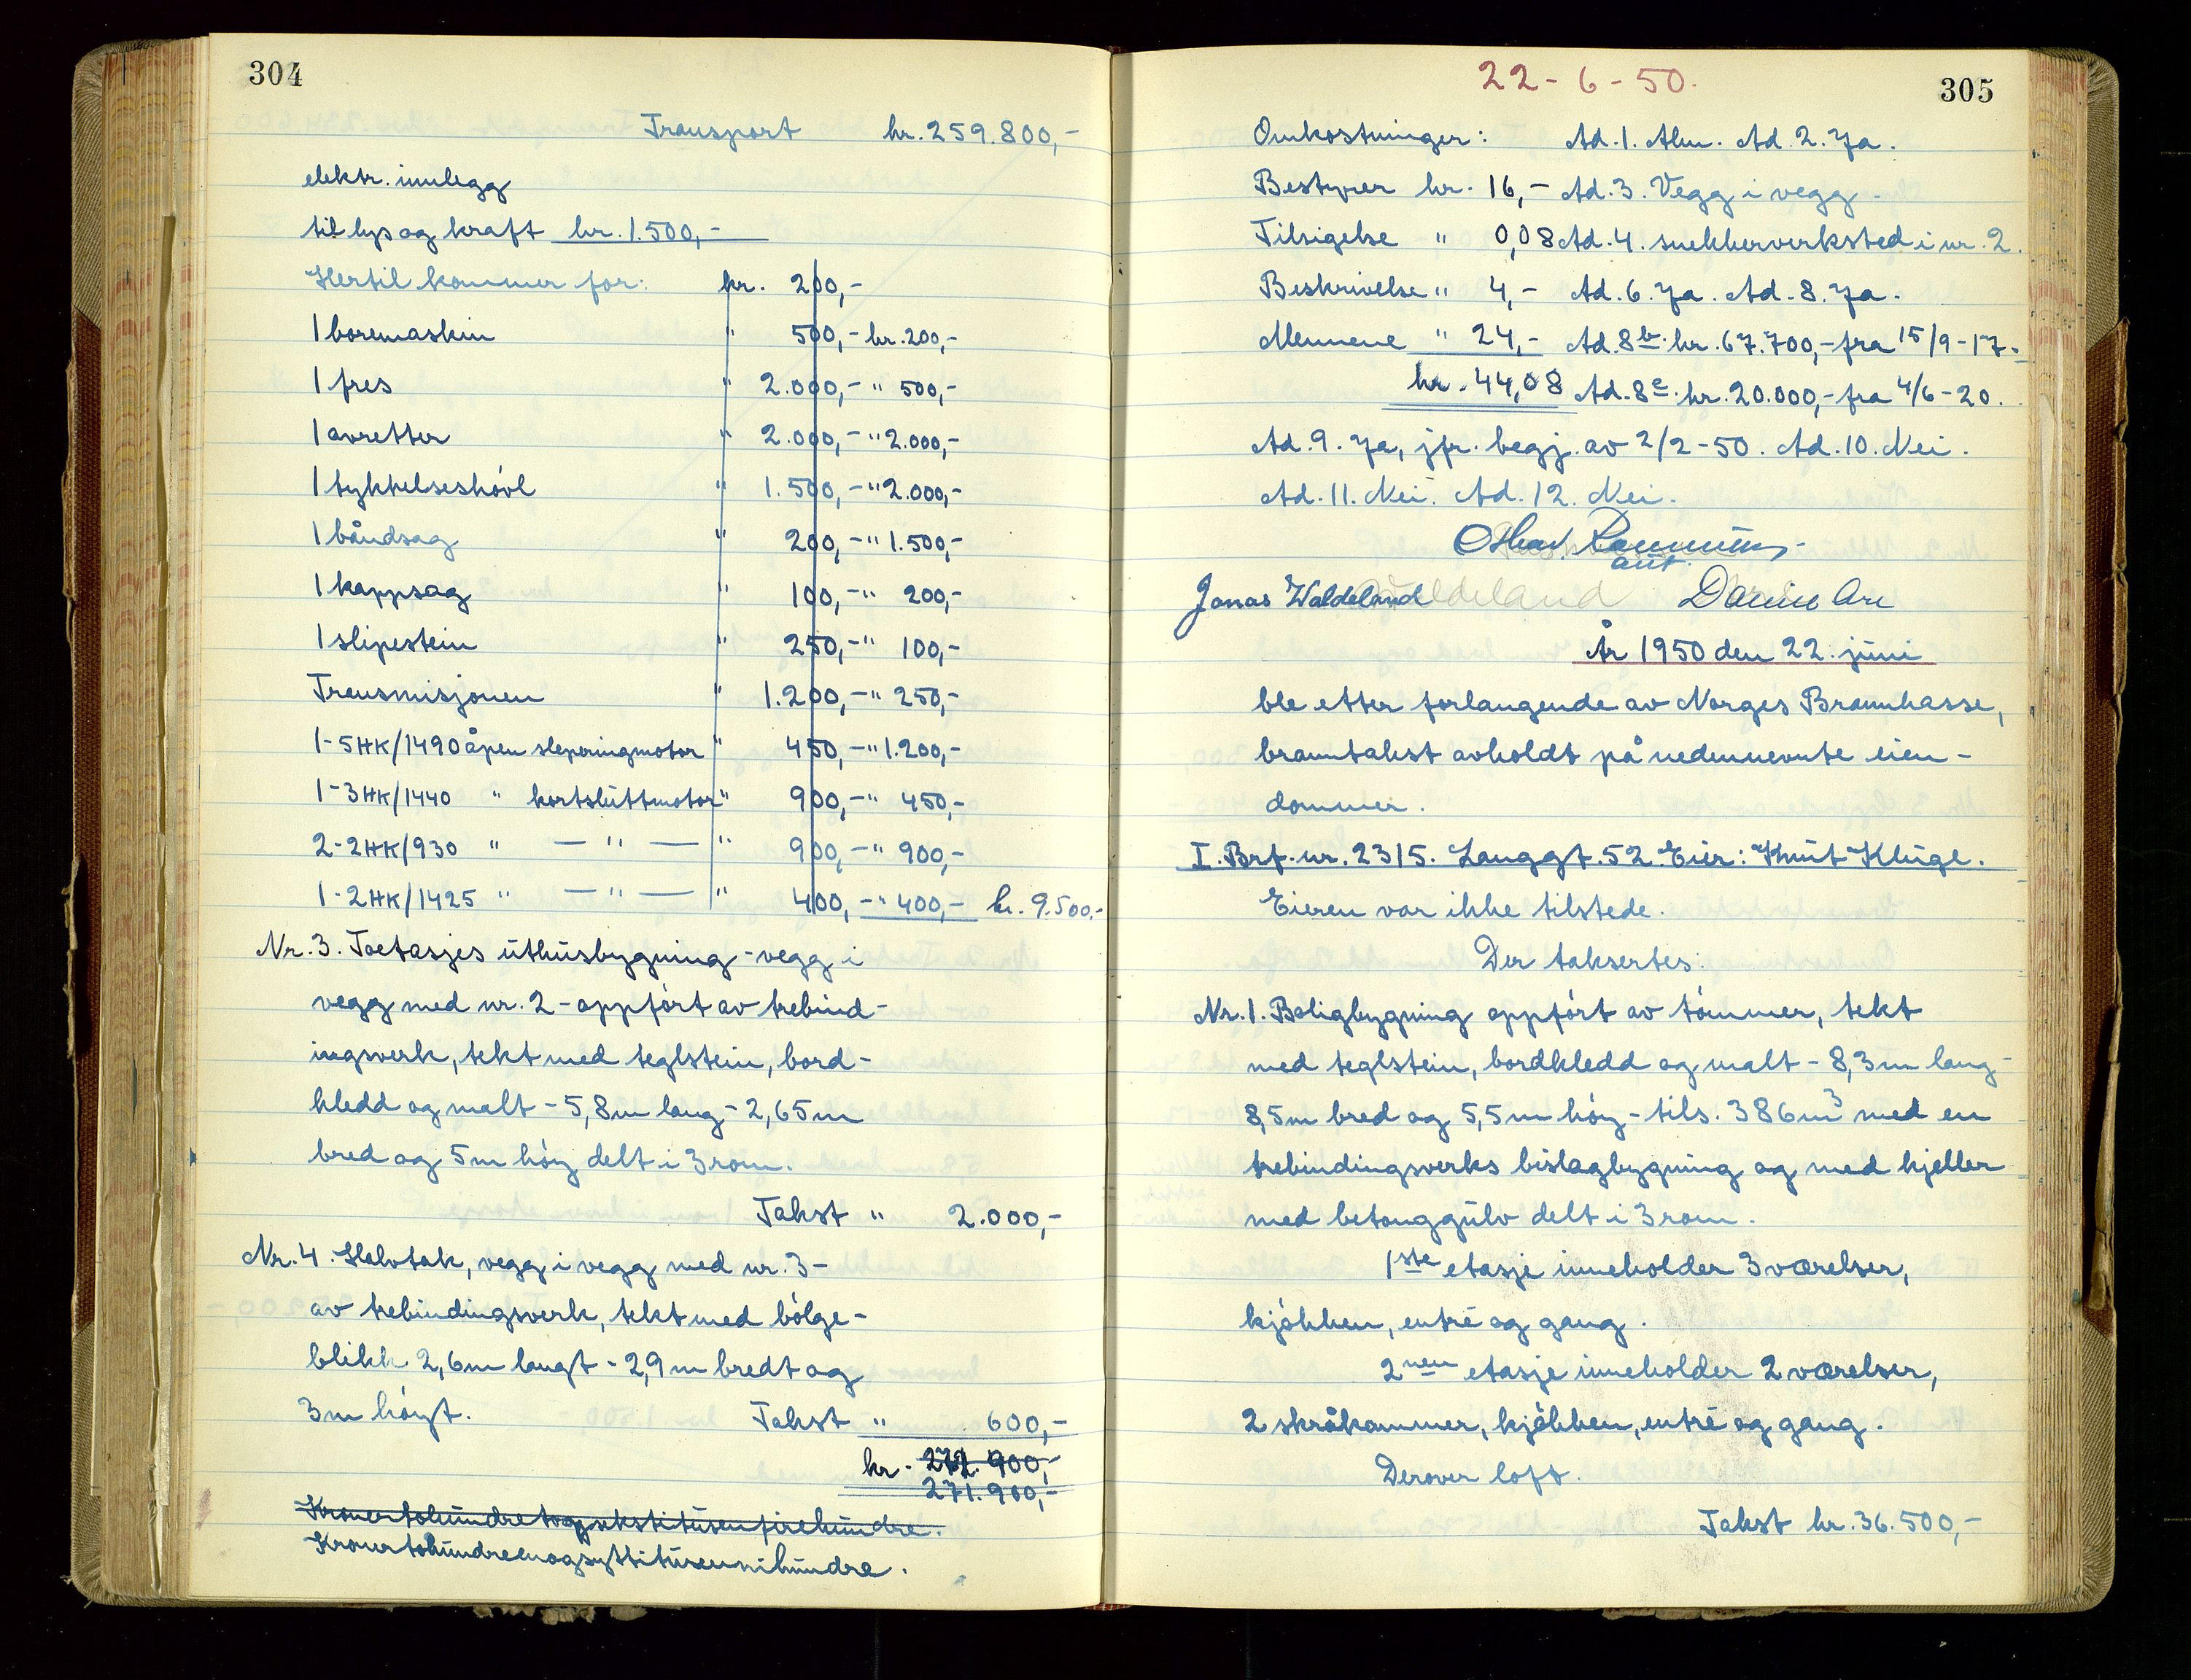 304
Transport kr. 259.800,-
elektr. innlegg
til lys og kraft kr. 1.500,-
Hertil kommer for: kr. 200,-
1 boremaskin " 500,- kr. 200,-
1 fres " 2.000,- " 500,-
1 avretter " 2.000,- " 2.000,-
1 tykkelseshóvl " 1.500,- " 2.000,-
1 båndsag " 200,- " 1.500,-
1 kappsag " 100,- " 200,-
1 slipestein " 250,- " 100,-
Transmisjonen " 1.200,- " 250,-
1-5HK/1490 åpen sleperingmotor " 450,- " 1.200,-
1-3HK/1440 " kortslúttmotor " 900,- " 450,-
2-2HK/930 " — " — " 900,- " 900,-
1-2HK/1425 " — " — " 400,- " 400,- kr. 9.500,-
Nr. 3. Toetasjes úthúsbygning - vegg i
vegg med nr. 2 - oppfórt av trebind-
ingsverk, tekt med teglstein, bord-
kledd og malt - 5,8m lang - 2,65m
bred og 5m hóy delt i 3 rom.
Takst " 2.000,-
Nr. 4. Halvtak, vegg i vegg med nr. 3 -
av trebindingsverk, tekt med bólge-
blikk 2,6m langt - 2,9m bredt og
3m hóyt. Takst " 600,-
kr. 272.900,-
271.900,-
Kroner tohúndreenogsyttitúsennihúndre.
22-6-50.
305
Omkostninger: Ad. 1. Alm. Ad. 2. Ja.
Bestyrer kr. 16,- Ad. 3. Vegg i vegg.
Tilsigelse " 0,08 Ad. 4. snekkerverksted i nr. 2.
Beskrivelse " 4,- Ad. 6. Ja. Ad. 8. Ja.
Mennene " 24,- Ad. 8b. kr. 67.700,- fra 15/9-17.
kr. 44,08 Ad. 8c. kr. 20.000,- fra 4/6-20.
Ad. 9. Ja, jfr. begj. av 2/2-50. Ad. 10. Nei.
Ad. 11. Nei. Ad. 12. Nei.
aút.
Jonas Waldeland
År 1950 den 22. júni
ble etter forlangende av Norges Brannkasse,
branntakst avholdt på nedennevnte eien-
dommer.
I. Brf. nr. 2315. Langgt. 52. Eier: Knút Klúge.
Eieren var ikke tilstede.
Der taksertes:
Nr. 1. Boligbygning oppfórt av tómmer, tekt
med teglstein, bordkledd og malt - 8,3m lang -
8,5m bred og 5,5m hóy - tils. 386m3 med en
trebindingsverks bislagbygning og med kjeller
med betonggúlv delt i 3 rom.
1ste etasje inneholder 3 værelser,
kjókken, entré og gang.
2nen etasje inneholder 2 værelser,
2 skråkammer, kjókken, entré og gang.
Derover loft.
Takst kr. 36.500,-